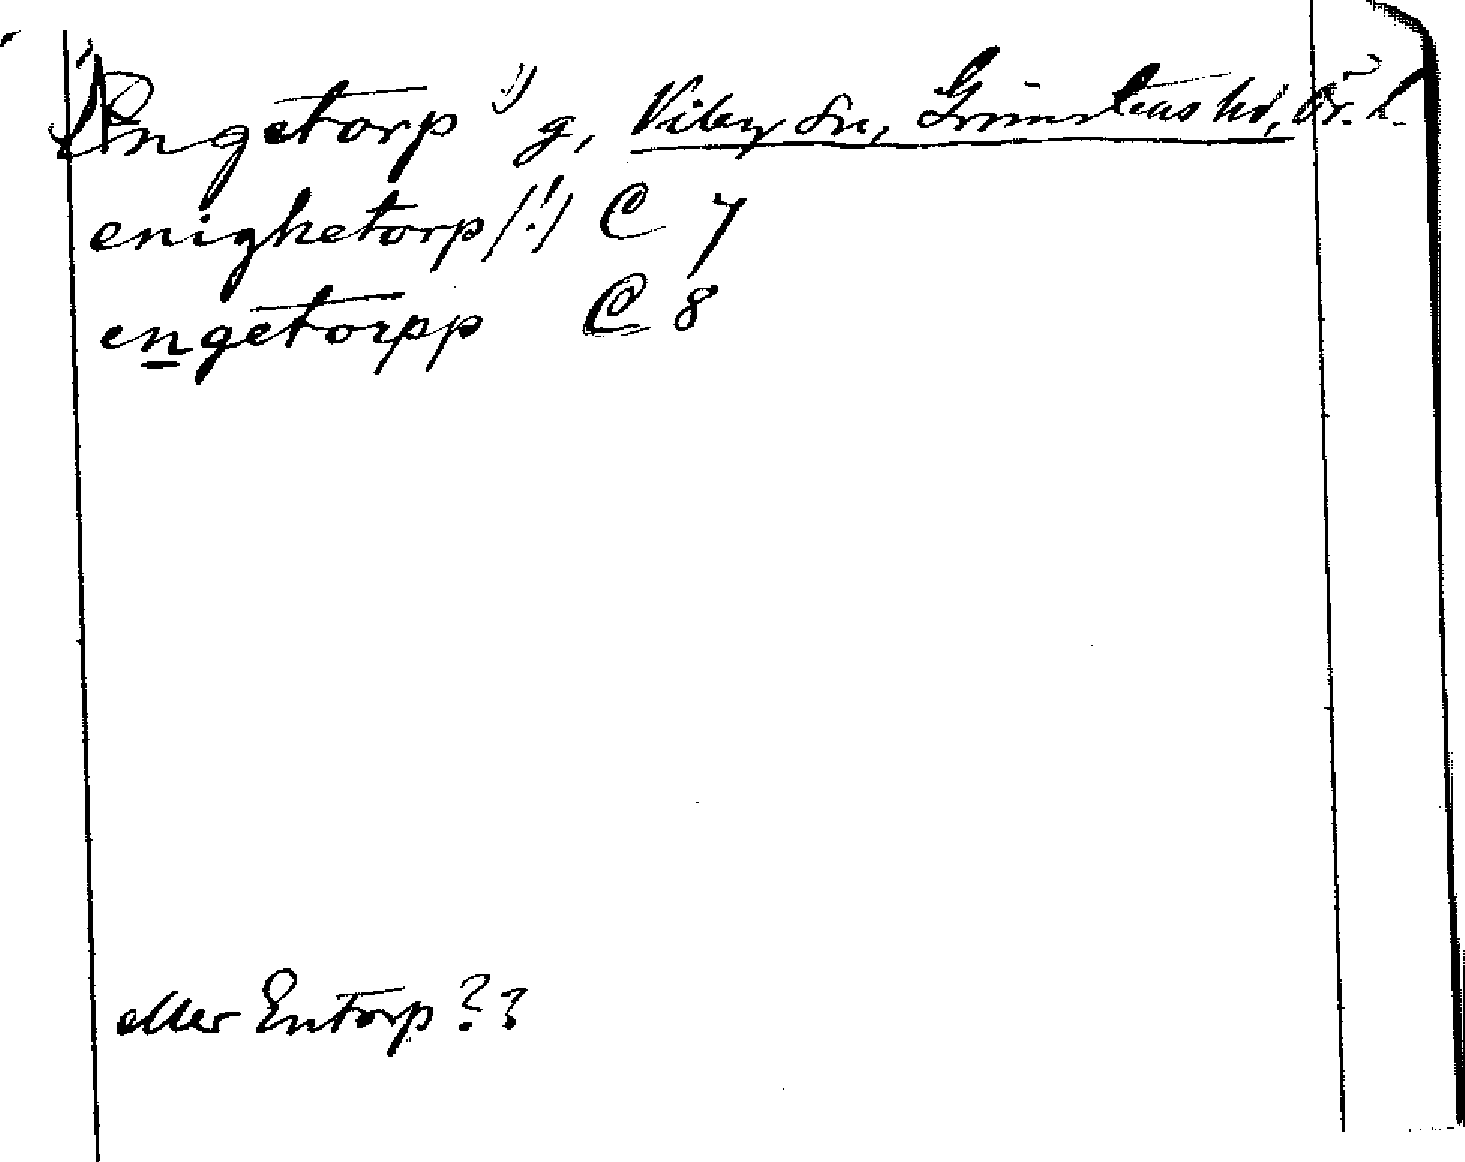 Ängetorp 1) g, Viby sn, Grimstens hd, Ör. l.
enighetorp (!) C 7
engetorpp C 8
eller Entorp??